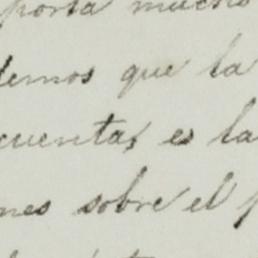 porta mucho
demos que la
cuentas es la
nes sobre el p